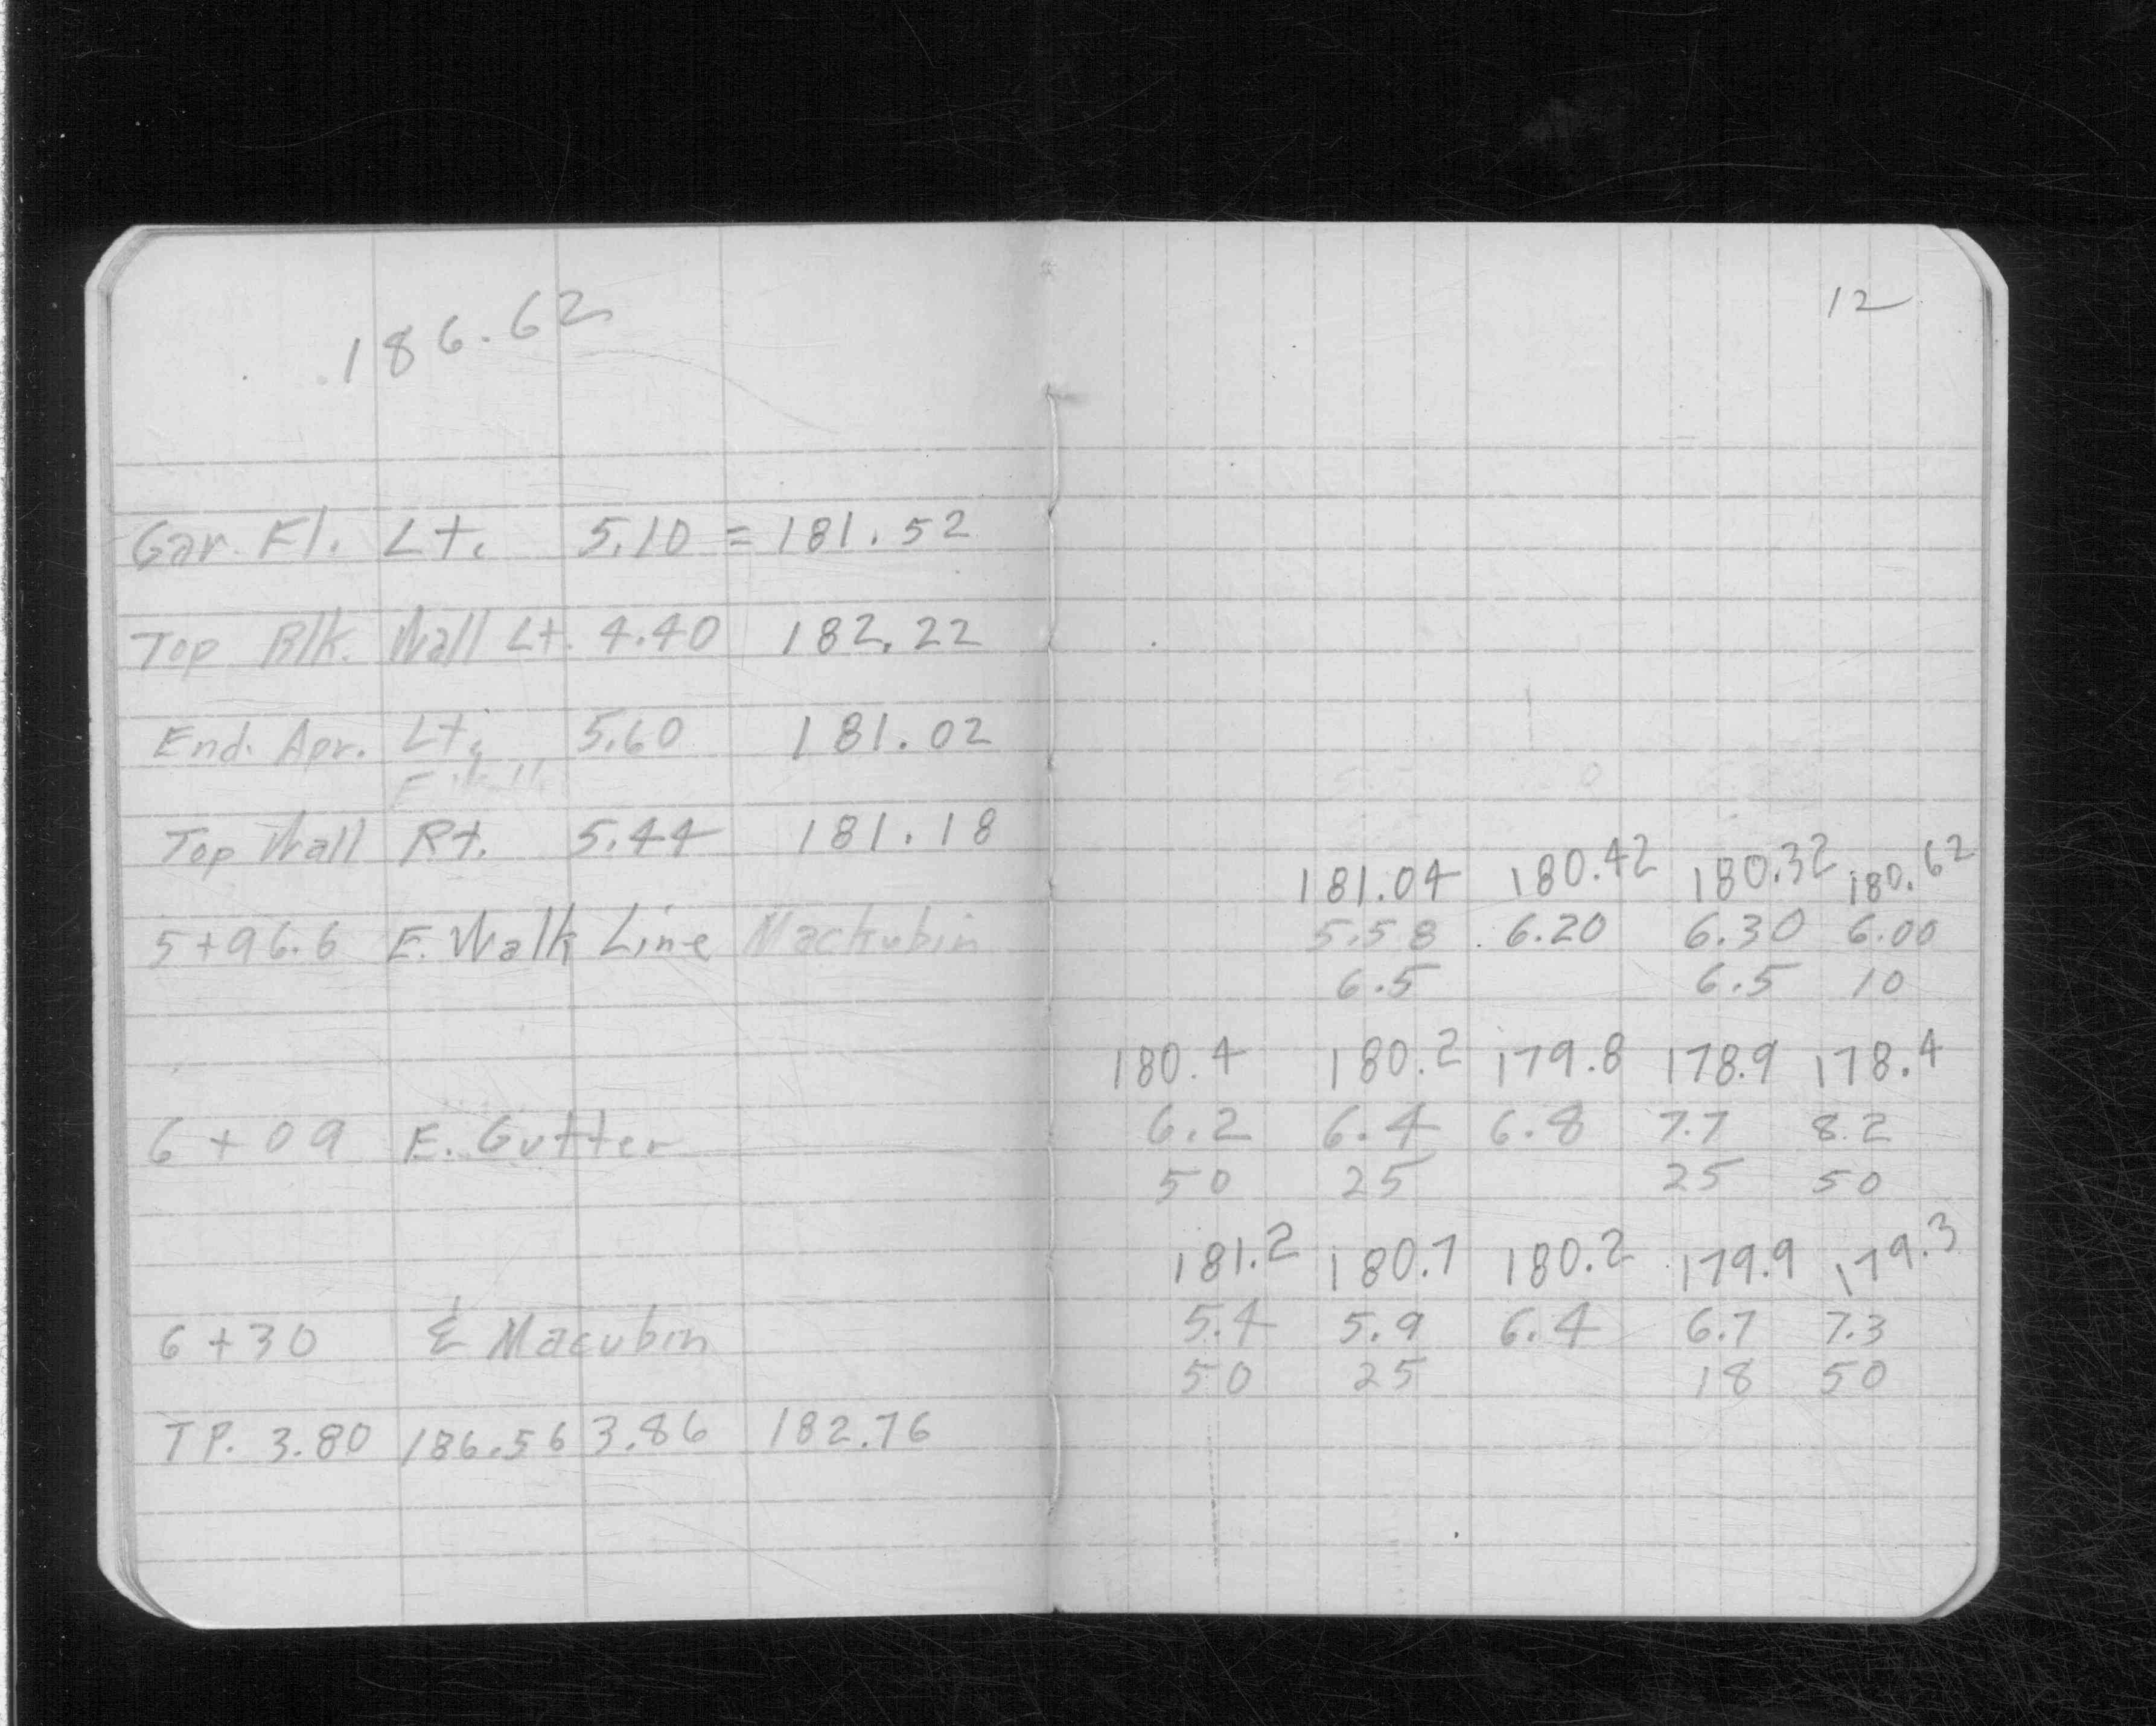 186.62
Gar. Fl. Lt. 5.10 = 181.52
Top Blk. Wall Lt. 4.40 182.22
End. Apr. Lt. 5.60 181.02
Top Wall Rt. 5.44 181.18
5+96.6 E. Walk Line Mackubin
6+09 E. Gutter
6+30 ℄ Macubin
TP. 3.80 186.56 3.86 182.76
12
181.04 180.42 180.32 180.62
5.58 6.20 6.30 6.00
6.5 6.5 10
180.4 180.2 179.8 178.9 178.4
6.2 6.4 6.8 7.7 8.2
50 25 25 50
181.2 180.7 180.2 179.9 179.3
5.4 5.9 6.4 6.7 7.3
50 25 18 50